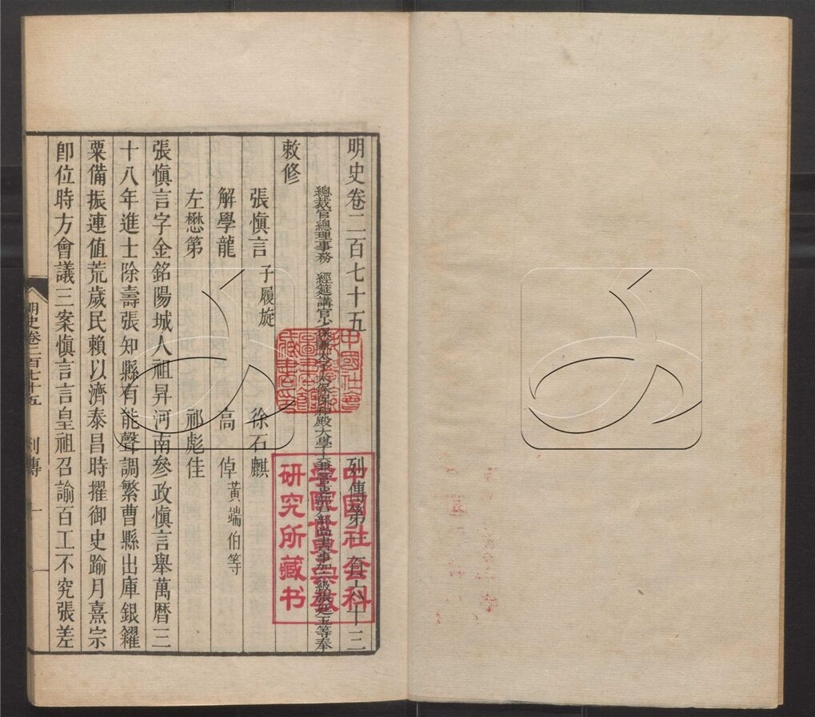 明史卷二百七十五 列傳第一百六十三
總裁官總理事務 經筵講官少保兼太子太保保和殿大學士兼管吏部戶部尚書事加六級張廷玉等奉
敕修
張慎言 子履旋 徐石麒
解學龍 高倬 黃端伯等
左懋第 祁彪佳
張慎言字金銘陽城人祖昇河南參政慎言舉萬曆三
十八年進士除壽張知縣有能聲調繁曹縣出庫銀糴
粟備振連值荒歲民賴以濟泰昌時擢御史踰月熹宗
卽位時方會議三案慎言言皇祖召諭百工不究張差
明史卷二百七十五 列傳 一
中國社會
圖書
藏書
中国社会科
研究所藏书